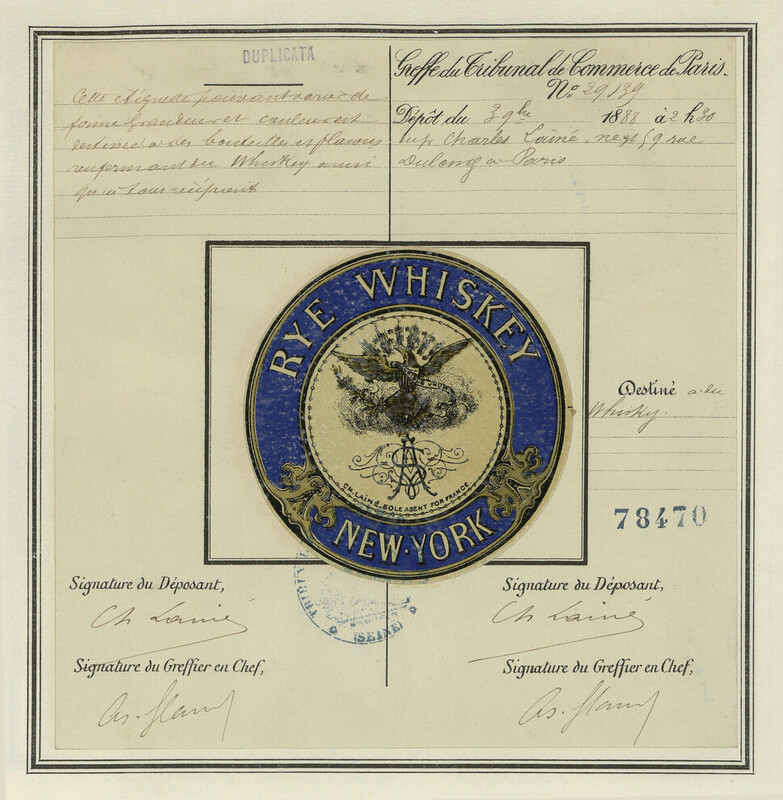 DUPLICATA
Cette étiquette pouvant varier de
forme grandeur et couleur est
destinée à des bouteilles et flacons
renfermant du Whiskey ainsi
qu'à tous récipient
Greffe du Tribunal de Commerce de Paris.
No. 29139
Dépôt du 3 9bre 1888 à 2 h 30
Charles Lainé, negt 59 rue
Dulong à Paris
RYE WHISKEY
CH. LAINÉ, SOLE AGENT FOR FRANCE
NEW·YORK
Destiné à du
Whisky.
78470
(SEINE)
Signature du Déposant,
Ch Lainé
Signature du Greffier en Chef,
Signature du Déposant,
Ch Lainé
Signature du Greffier en Chef,